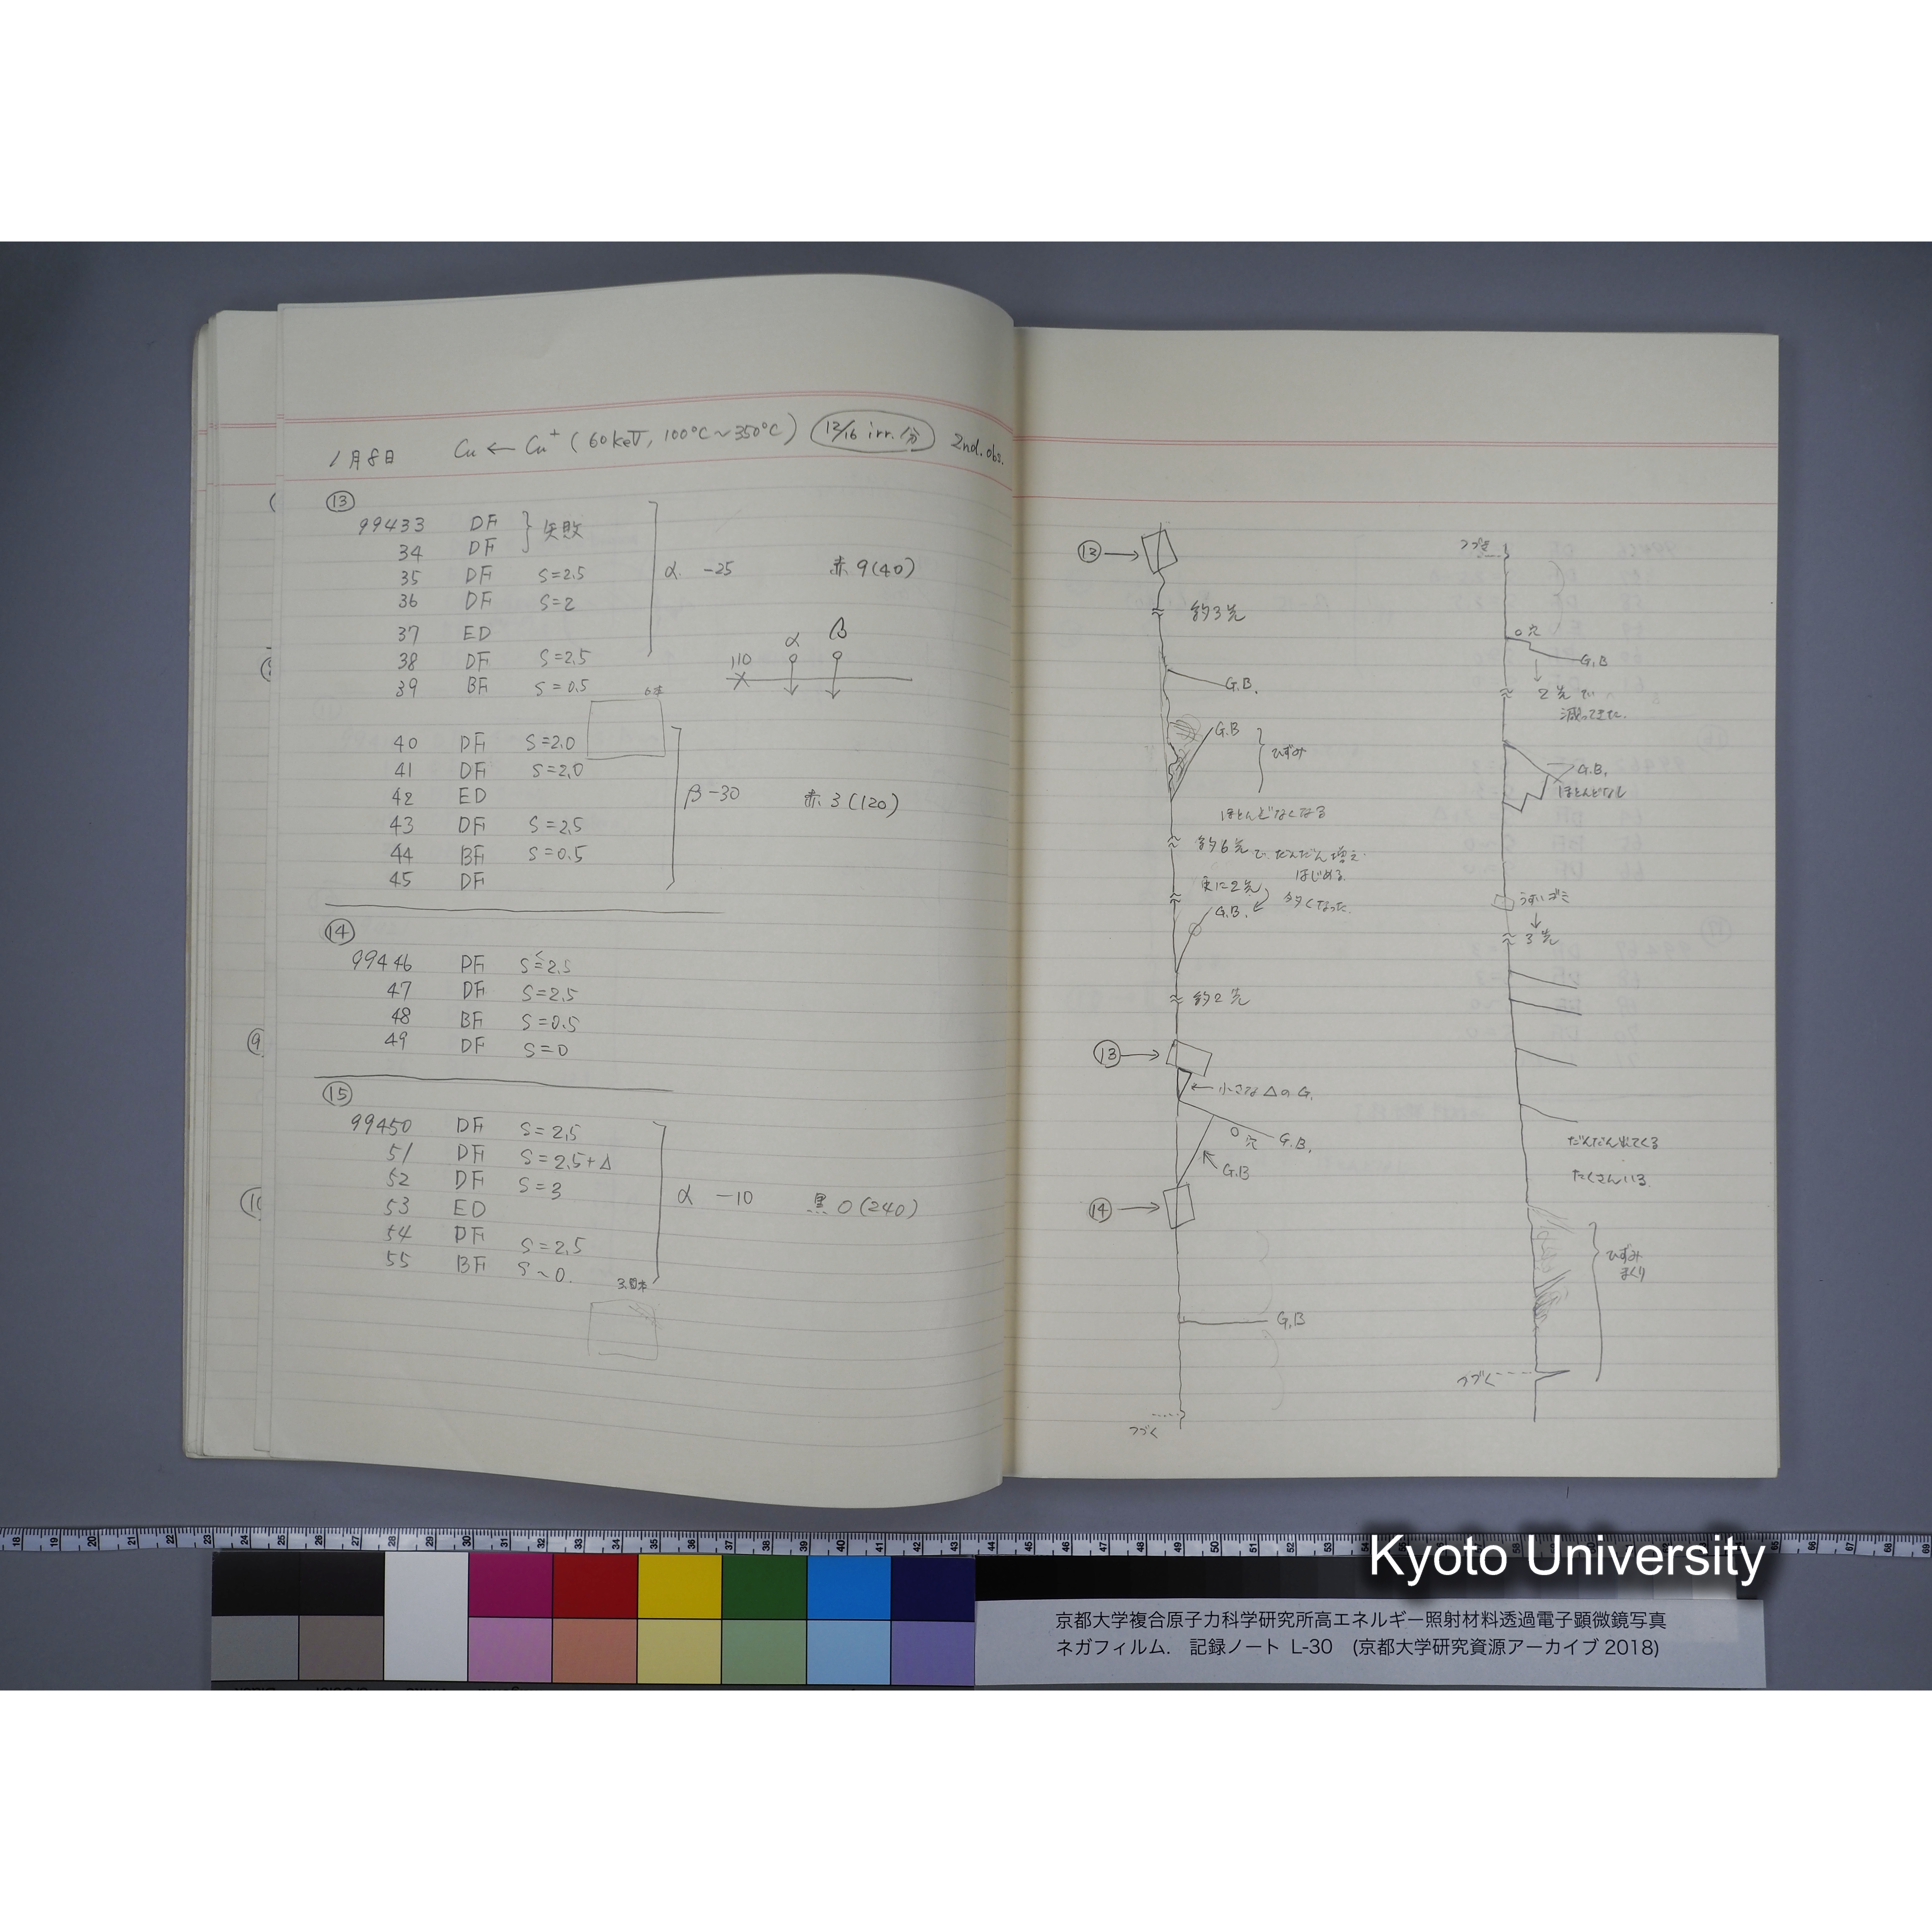 1月8日 Cu ← Cu⁺ (60 keV, 100°C~350°C) 12/16 irr.分 2nd. obs.
⑬
99433 DF } 失敗
34 DF
35 DF S=2.5
36 DF S=2
37 ED
38 DF S=2.5
39 BF S=0.5
α -25 赤9(40)
110 α β
6本
40 DF S=2.0
41 DF S=2.0
42 ED
43 DF S=2.5
44 BF S=0.5
45 DF
β-30 赤3(120)
⑭
99446 DF S≤2.5
47 DF S=2.5
48 BF S=0.5
49 DF S=0
⑮
99450 DF S=2.5
51 DF S=2.5+Δ
52 DF S=3
53 ED
54 DF S=2.5
55 BF S~0.
α -10 黒0(240)
⑬→
約3先
G.B.
G.B
ひずみ
ほとんどなくなる
約6先でだんだん増え
はじめる.
更に2先
多くなった.
G.B.
約2先
⑬→
←小さなΔのG.
穴 G.B.
G.B
⑭→
G.B
つづく
つづき
穴
G.B
2先で
減ってきた.
G.B.
ほとんどなし
うすいゴミ
↓
3先
だんだん出てくる
たくさんいる
ひずみ
まくり
つづく
⑨
⑩
18 19 20 21 22 23 24 25 26 27 28 29 30 31 32 33 34 35 36 37 38 39 40 41 42 43 44 45 46 47 48 49 50 51 52 53 54
65 66 67 68 69
Kyoto University
京都大学複合原子力科学研究所高エネルギー照射材料透過電子顕微鏡写真
ネガフィルム. 記録ノート L-30 (京都大学研究資源アーカイブ 2018)